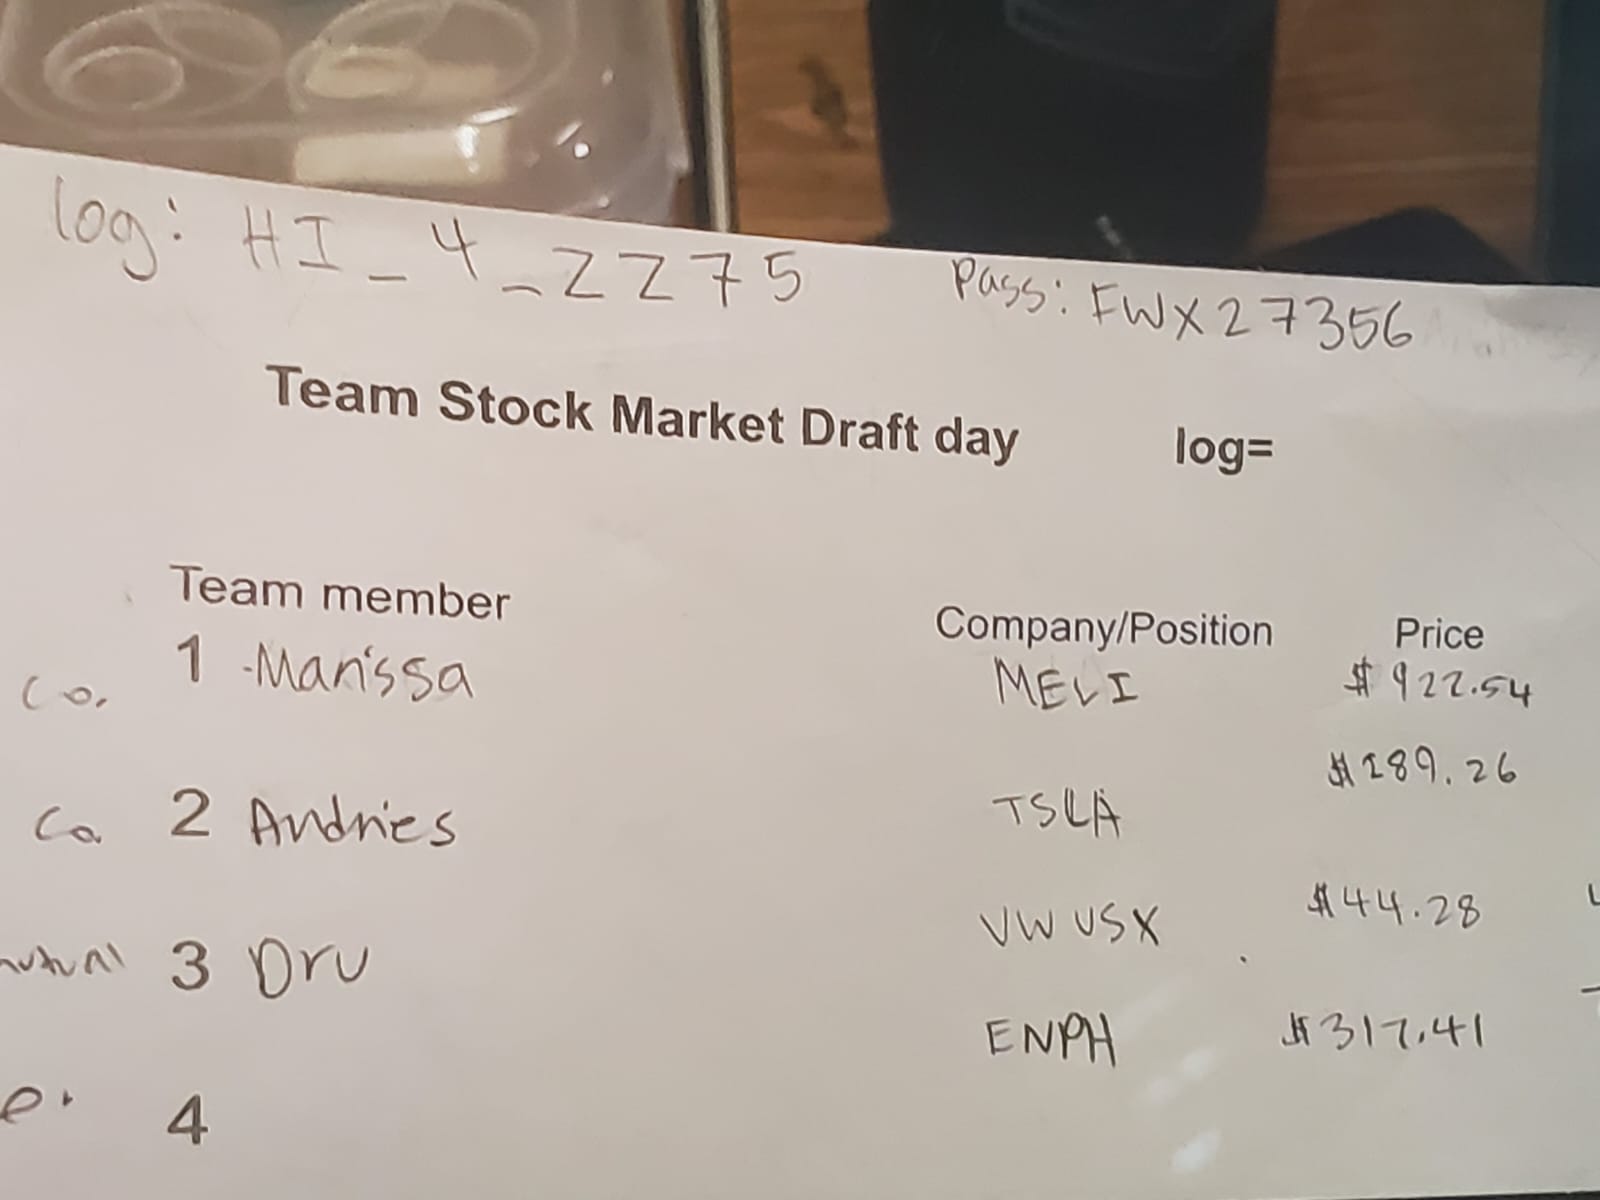 log: HI_4_ZZ75 Pass: FWX27356
Team Stock Market Draft day log=
Team member Company/Position Price
Co. 1 -Marissa MELI $922.54
$289.26
Co. 2 Andries TSLA
$44.28
mutual 3 Dru VWUSX
ENPH $317.41
4